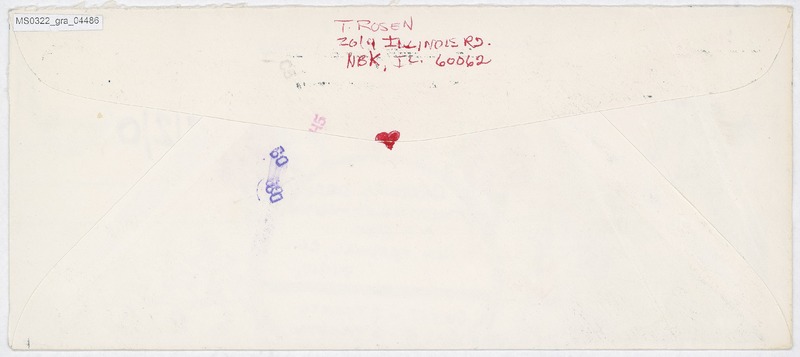 MS0322_gra_04486
T. ROSEN
2019 ILLINOIS RD.
NBK, IL. 60062
45
60